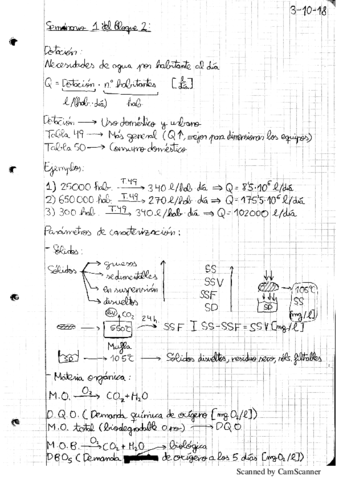 3-10-18
Seminario 1 del Bloque 2:
Dotación:
Necesidades de agua por habitante al día
Q = Dotación · nº habitantes
l/hab·día) hab
Dotación → Uso doméstico y urbano
Tabla 49 → Más general (Q↑, mejor para dimensionar los equipos)
Tabla 50 → Consumo doméstico
Ejemplos:
1) 25000 hab T49 → 340 l/hab día ⇒ Q = 8'5·10⁶ l/día
2) 650000 hab T49 → 270 l/hab día ⇒ Q = 175'5·10⁶ l/día
3) 300 hab T49 → 340 l/hab día ⇒ Q = 102000 l/día
Parámetros de caracterización:
- Sólidos:
Sólidos → gruesos
→ sedimentables
→ en suspensión
→ disueltos
SS
SSV
SSF
SD
SD
105ºC
SS
[mg/l]
CO₂
550ºC 24h → SSF I SS-SSF = SSV [mg/l]
Mufla
SD → 105ºC → Sólidos disueltos, residuo seco, sól. filtables
- Materia orgánica:
M.O. O₂ → CO₂ + H₂O
D.Q.O. (Demanda química de oxígeno [mg O₂/l])
M.O. total (biodegradable o no) → DQO
M.O.B. O₂ → CO₂ + H₂O → biológica
DBO₅ (Demanda de oxígeno a los 5 días [mg O₂/l])
Scanned by CamScanner